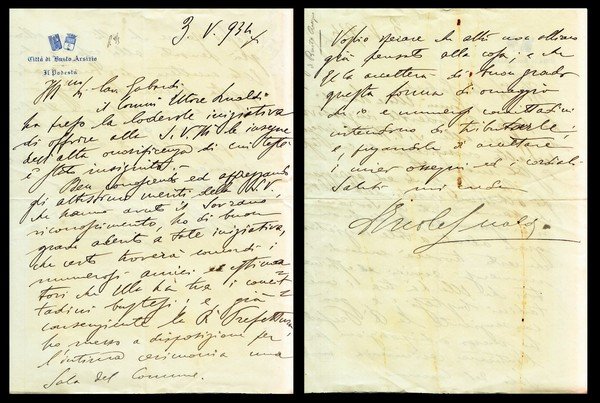 3. V. 934
Città di Busto Arsizio
Il Podestà
Ill.mo Sig. Gabardi
il Comm. Ettore
ha preso la lodevole iniziativa
di offrire alla S. V. Ill. le insegne
dell'alta onorificenza di cui
è stato insignito.
Ben conoscente ed apprezzando
gli altissimi meriti della S. V.
che hanno avuto il Sovrano
riconoscimento, ho di buon
grado aderito a tale iniziativa,
che certo troverà concordi i
numerosi amici ed estima
tori che Ella ha tra i concit
tadini bustesi; e, già
consenziente la R. Prefettura,
ho messo a disposizione per
l'intima cerimonia una
Sala del Comune.
Voglio sperare che altri non abbiano
già pensato alla cosa; e che
Ella accetterà di buon grado
questa forma di omaggio
che io e numerosi concittadini
intendono di tributarle;
e, pregandola di accettare
i miei ossequi ed i cordiali
saluti mi creda